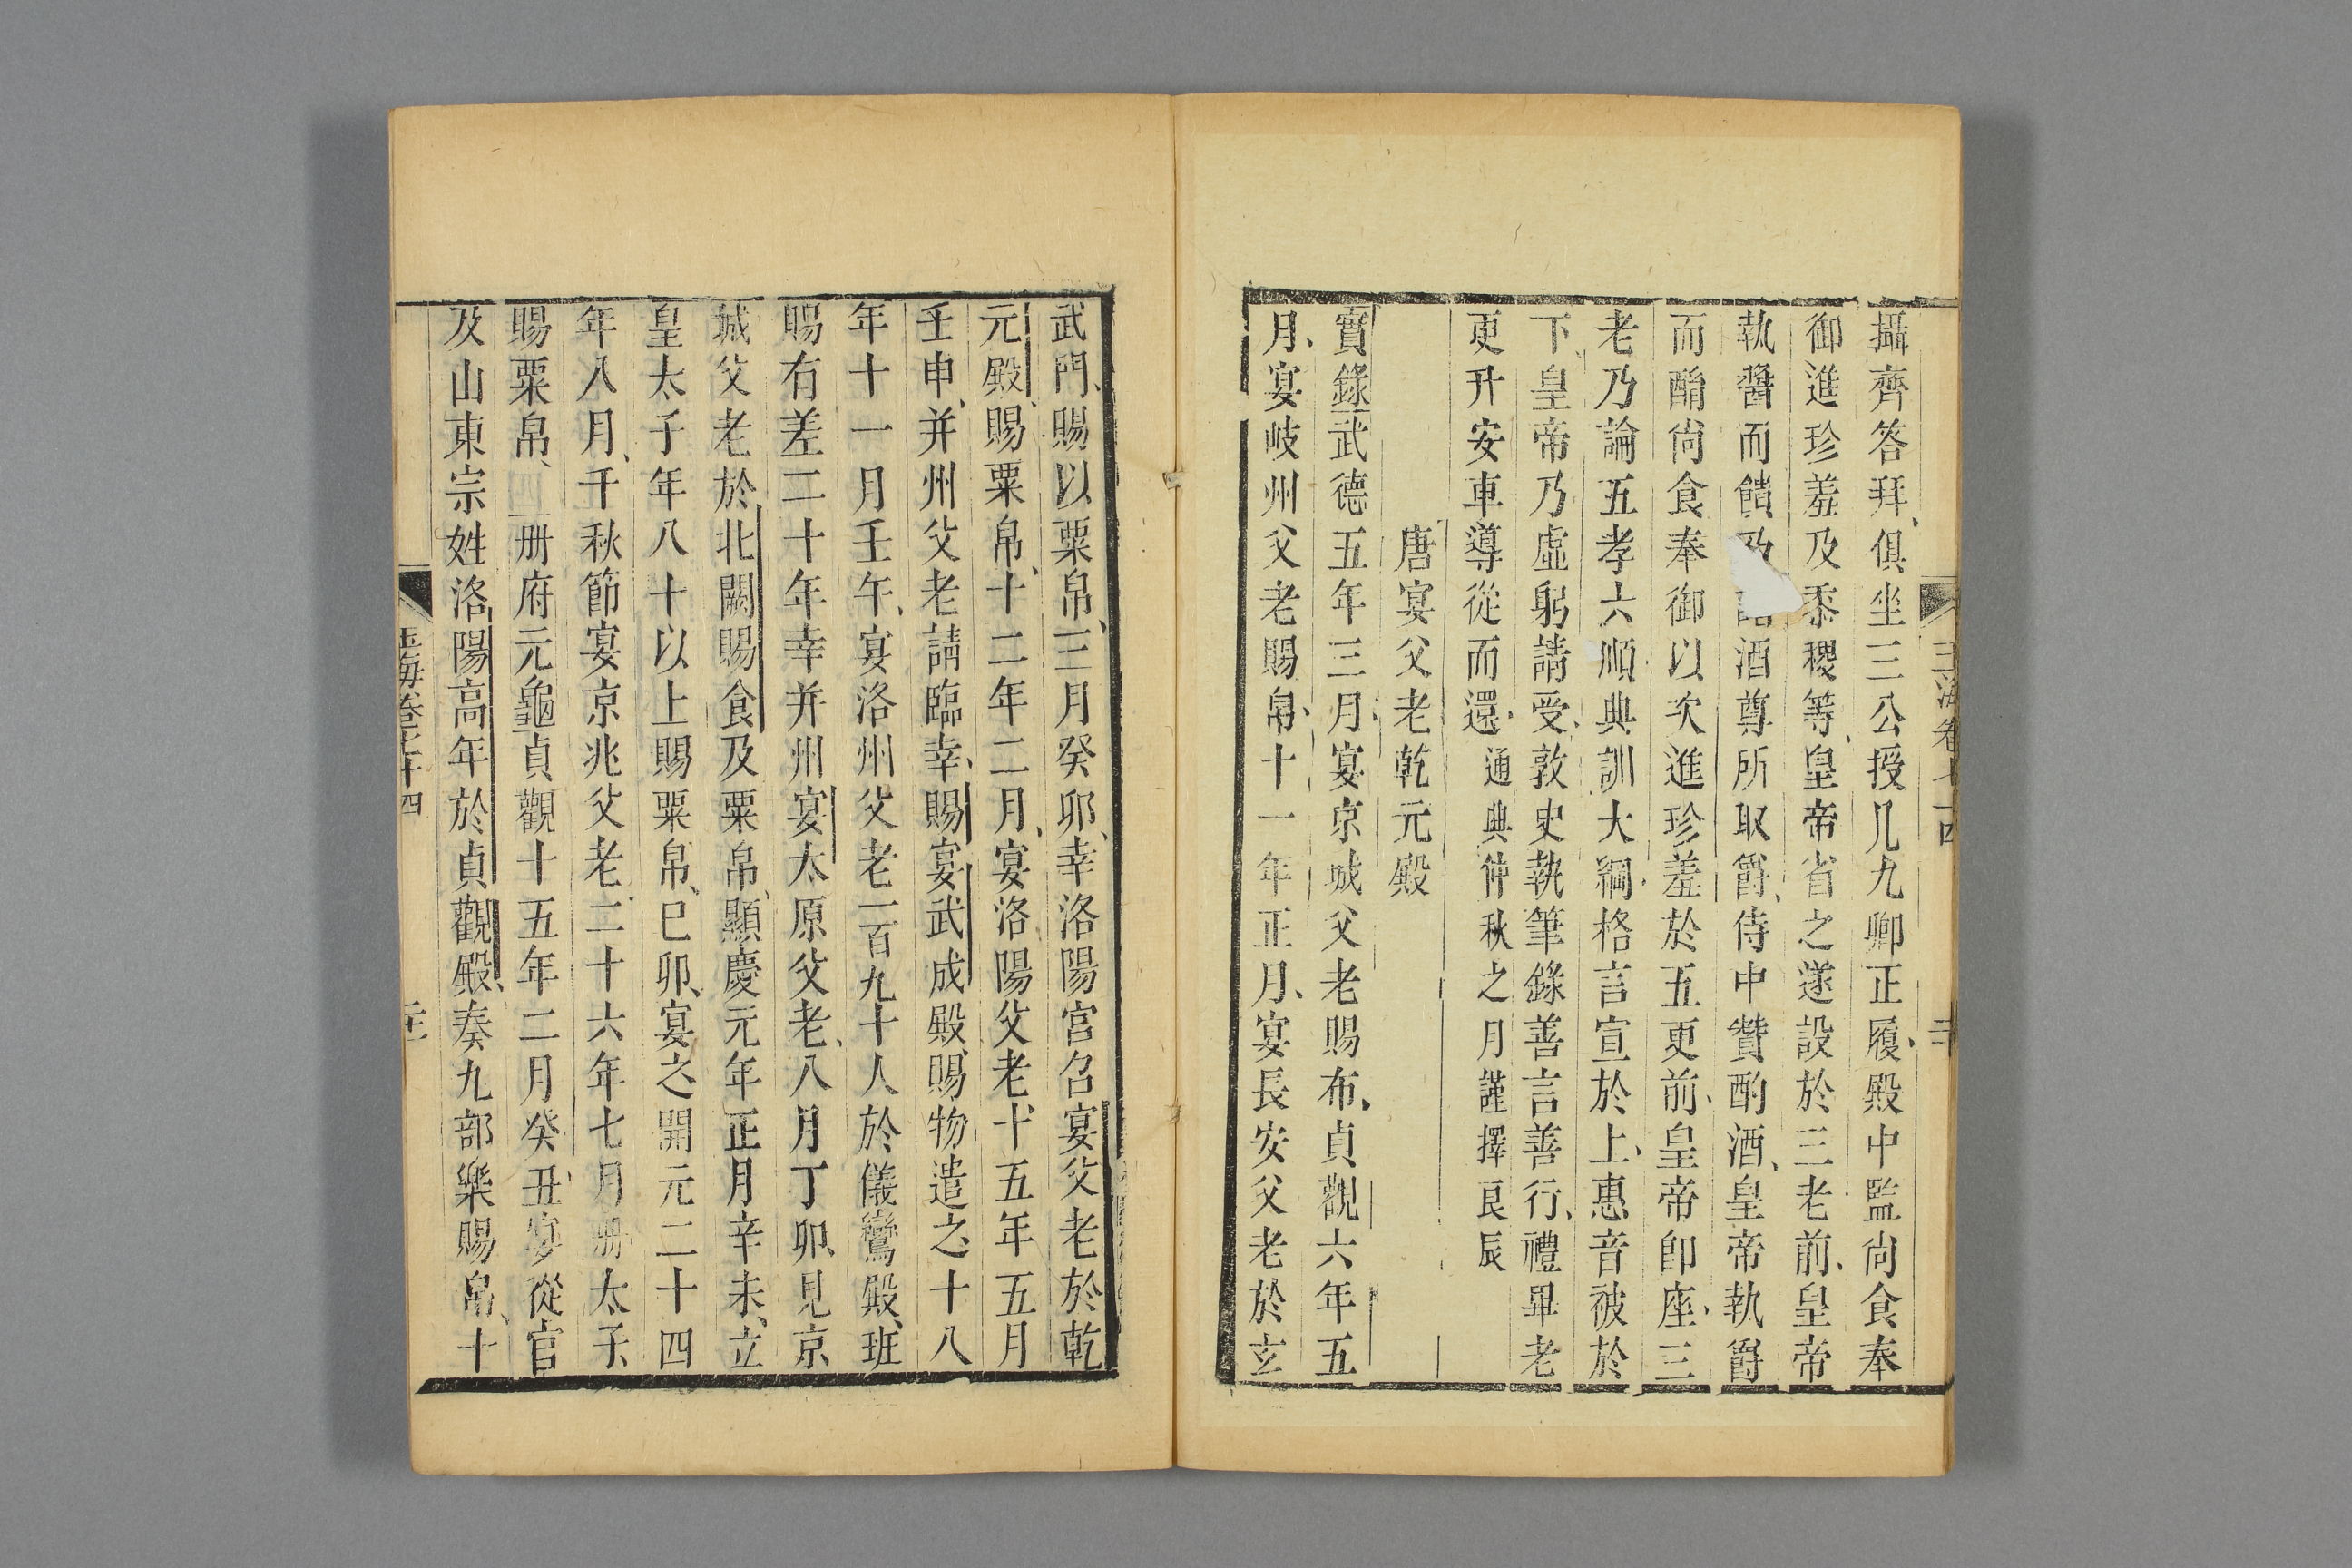 攝齊答拜俱坐三公授几九卿正履殿中監尙食奉
御進珍羞及黍稷等皇帝省之遂設於三老前皇帝
執醬而饋酒尊所取爵侍中贊酌酒皇帝執爵
而酳尙食奉御以次進珍羞於五更前皇帝卽座三
老乃論五孝六順典訓大綱格言宣於上惠音被於
下皇帝乃虛躬請受敦史執筆錄善言善行禮畢老
更升安車導從而還通典仲秋之月謹擇良辰
唐宴父老乾元殿
實錄武德五年三月宴京城父老賜布貞觀六年五
月宴岐州父老賜帛十一年正月宴長安父老於玄
玉海卷七十四
二十
武門賜以粟帛三月癸卯幸洛陽宮召宴父老於乾
元殿賜粟帛十二年二月宴洛陽父老十五年五月
壬申并州父老請臨幸賜宴武成殿賜物遣之十八
年十一月壬午宴洛州父老一百九十人於儀鸞殿班
賜有差二十年幸并州宴太原父老八月丁卯見京
城父老於北闕賜食及粟帛顯慶元年正月辛未立
皇太子年八十以上賜粟帛已卯宴之開元二十四
年八月千秋節宴京兆父老二十六年七月冊太子
賜粟帛冊府元龜貞觀十五年二月癸丑宴從官
及山東宗姓洛陽高年於貞觀殿奏九部樂賜帛十
玉海卷七十四